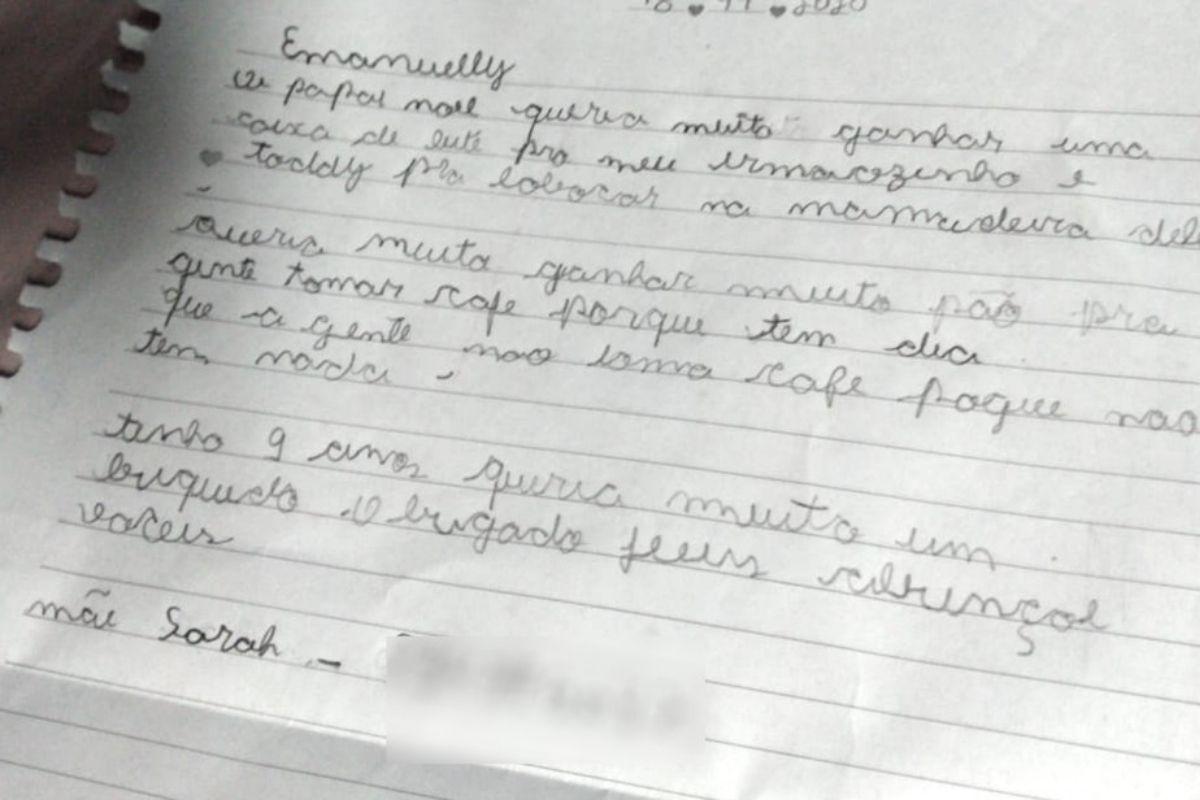 18 ♥ 11 ♥ 2020
Emanuelly
papai noel queria muito ganhar uma
caixa de leite pro meu irmaozinho e
♥ toddy pra colocar na mamadeira del
queria muito ganhar muito pão pra
gente tomar cafe porque tem dia
que a gente nao toma cafe poque nao
tem nada
tenho 9 anos queria muito um
briquedo obrigado Jeus
voceis
mãe Sarah -